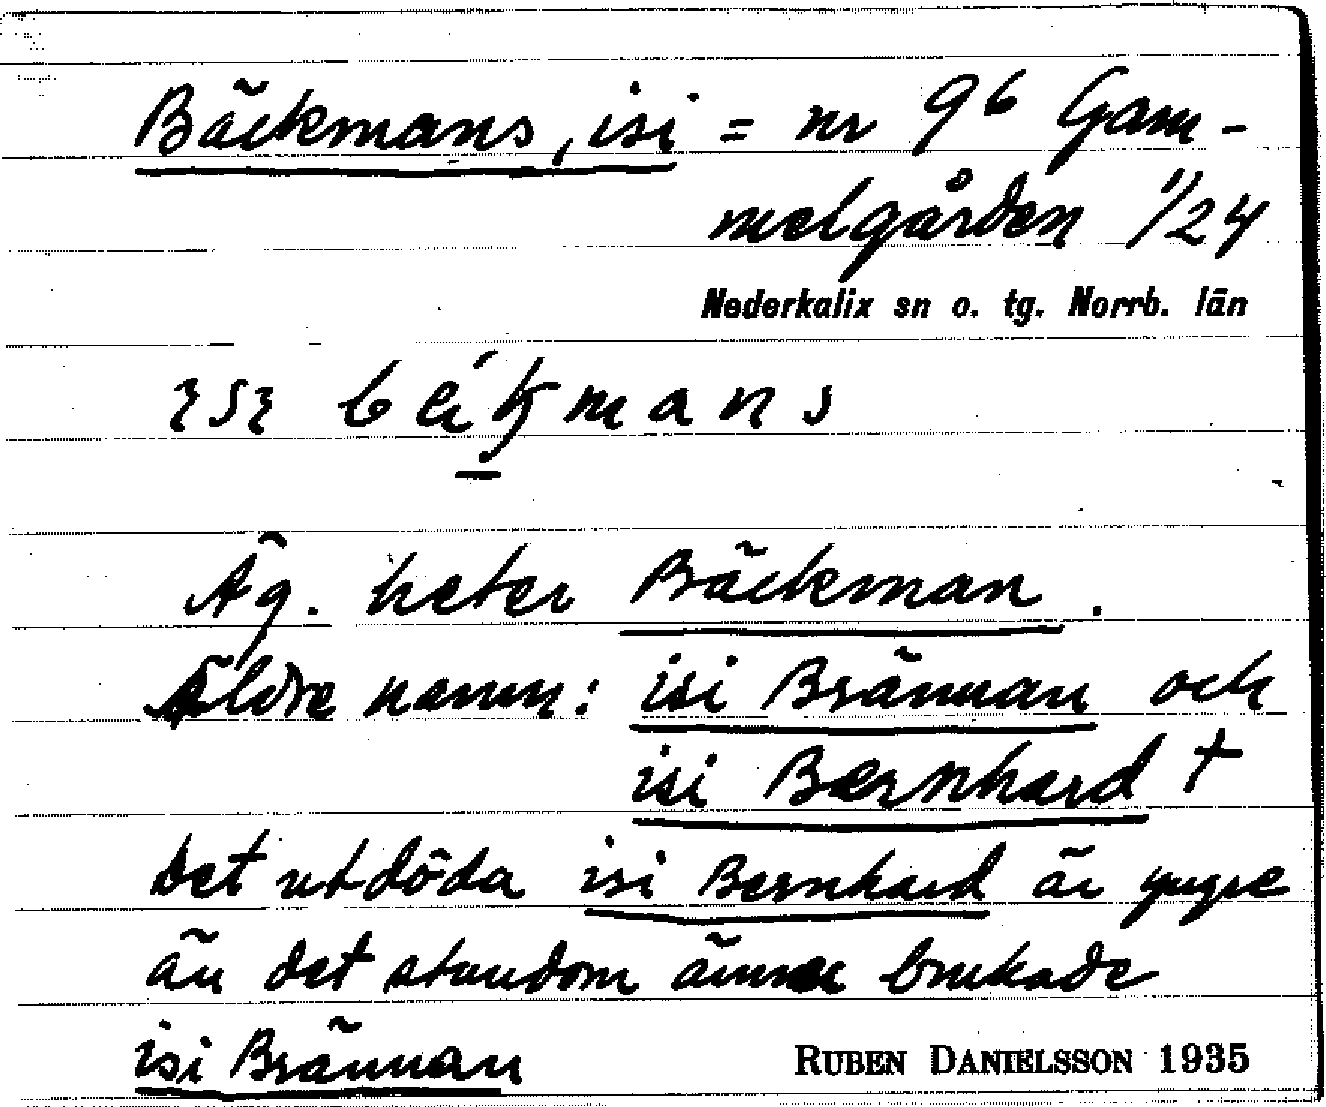 Bäckmans, isi = nr 9⁶ Gam-
melgården 1/24
Nederkalix sn o. tg. Norrb. län
Äg. heter Bäckman.
Äldre namn: isi Brännan och
isi Bernhard †
Det utdöda isi Bernhard är yngre
än det stundom ännu brukade
isi Brännan
RUBEN DANIELSSON 1935